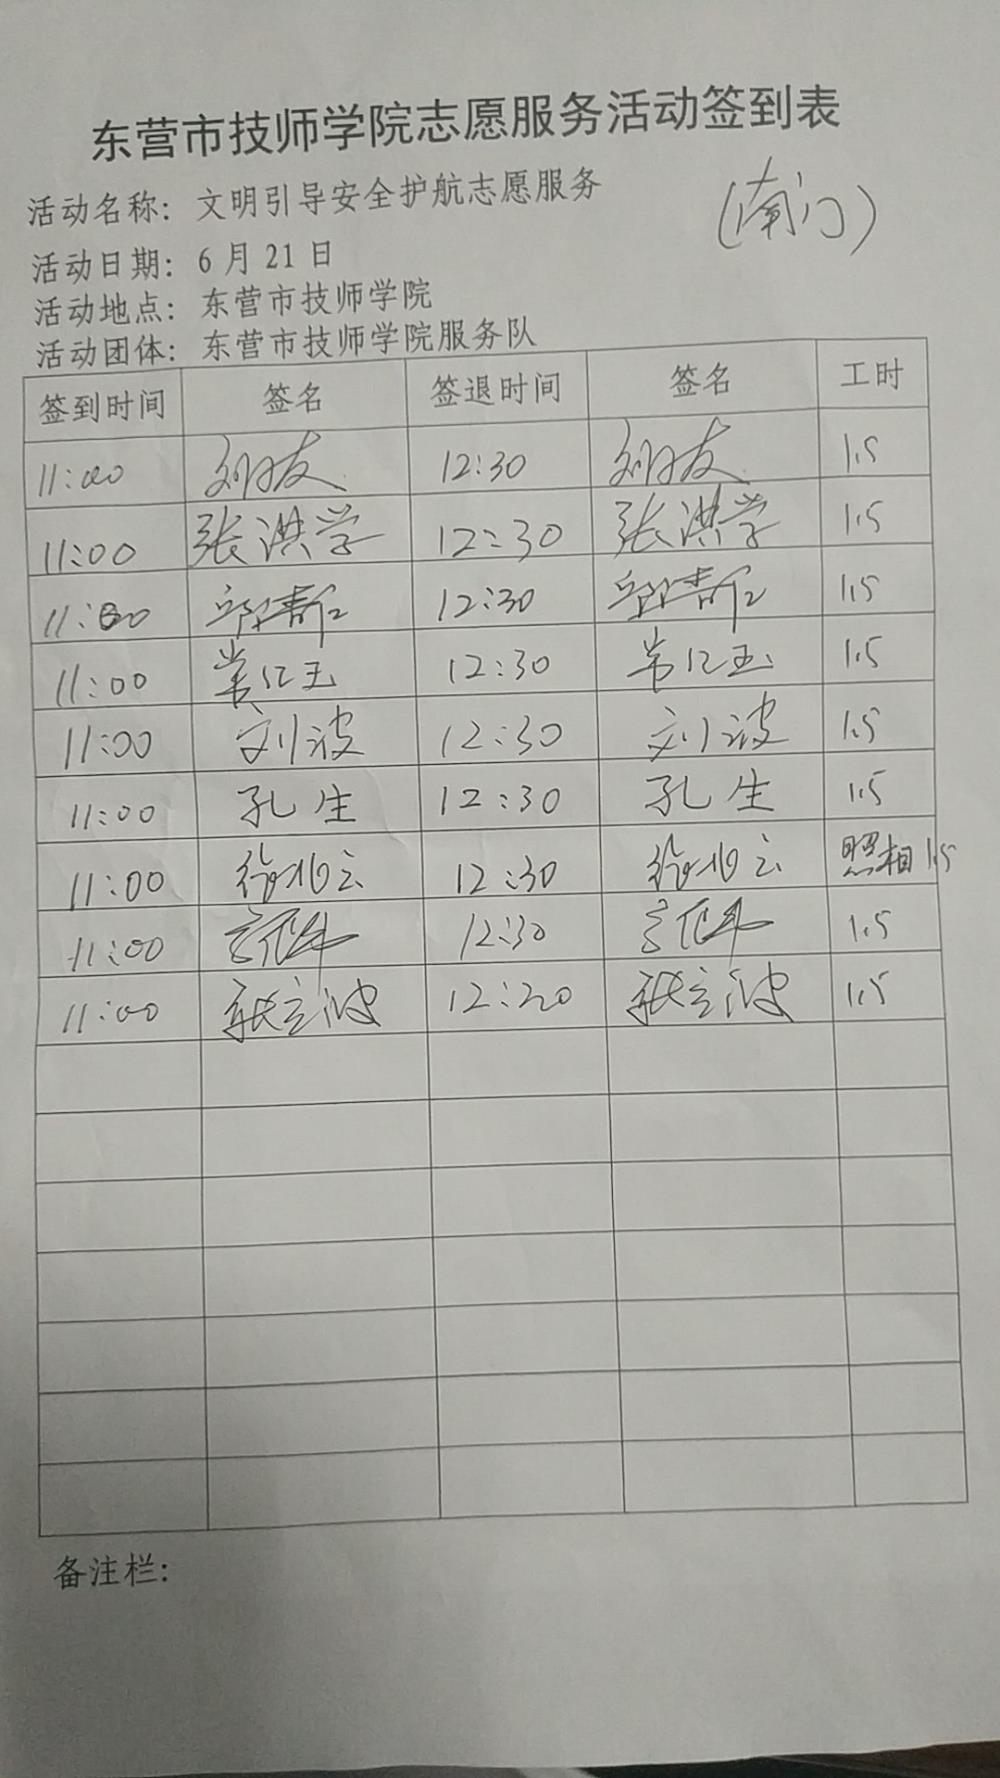 东营市技师学院志愿服务活动签到表
活动名称：文明引导安全护航志愿服务
(南门)
活动日期：6月21日
活动地点：东营市技师学院
活动团体：东营市技师学院服务队
签到时间 签名 签退时间 签名 工时
11:00 12:30 1.5
11:00 张洪学 12:30 张洪学 1.5
11:00 12:30 1.5
11:00 12:30 1.5
11:00 刘波 12:30 刘波 1.5
11:00 孔生 12:30 孔生 1.5
11:00 12:30 照相 1.5
11:00 12:30 1.5
11:00 张立波 12:20 张立波 1.5
备注栏：